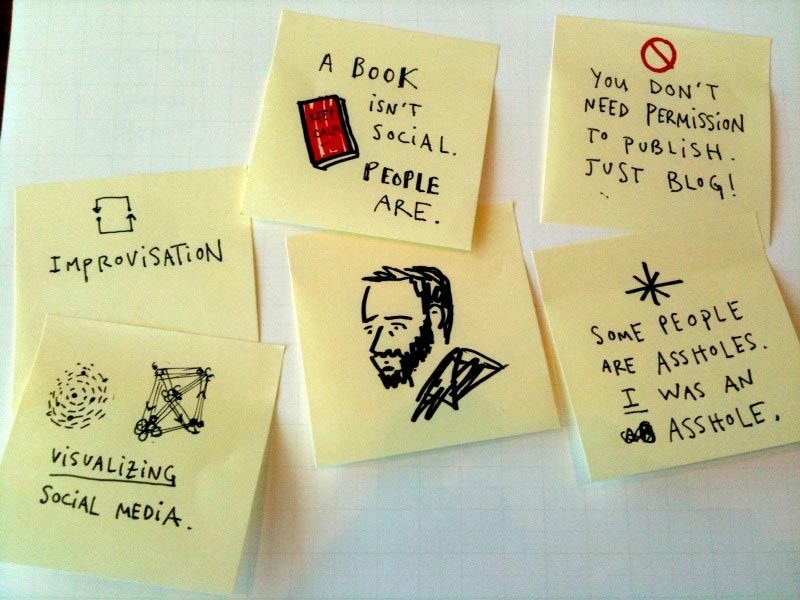 A BOOK
ISN'T
SOCIAL.
PEOPLE
ARE.
KEEP
CALM
YOU DON'T
NEED PERMISSION
TO PUBLISH.
JUST BLOG!
IMPROVISATION
SOME PEOPLE
ARE ASSHOLES.
I WAS AN
ASSHOLE.
VISUALIZING
SOCIAL MEDIA.